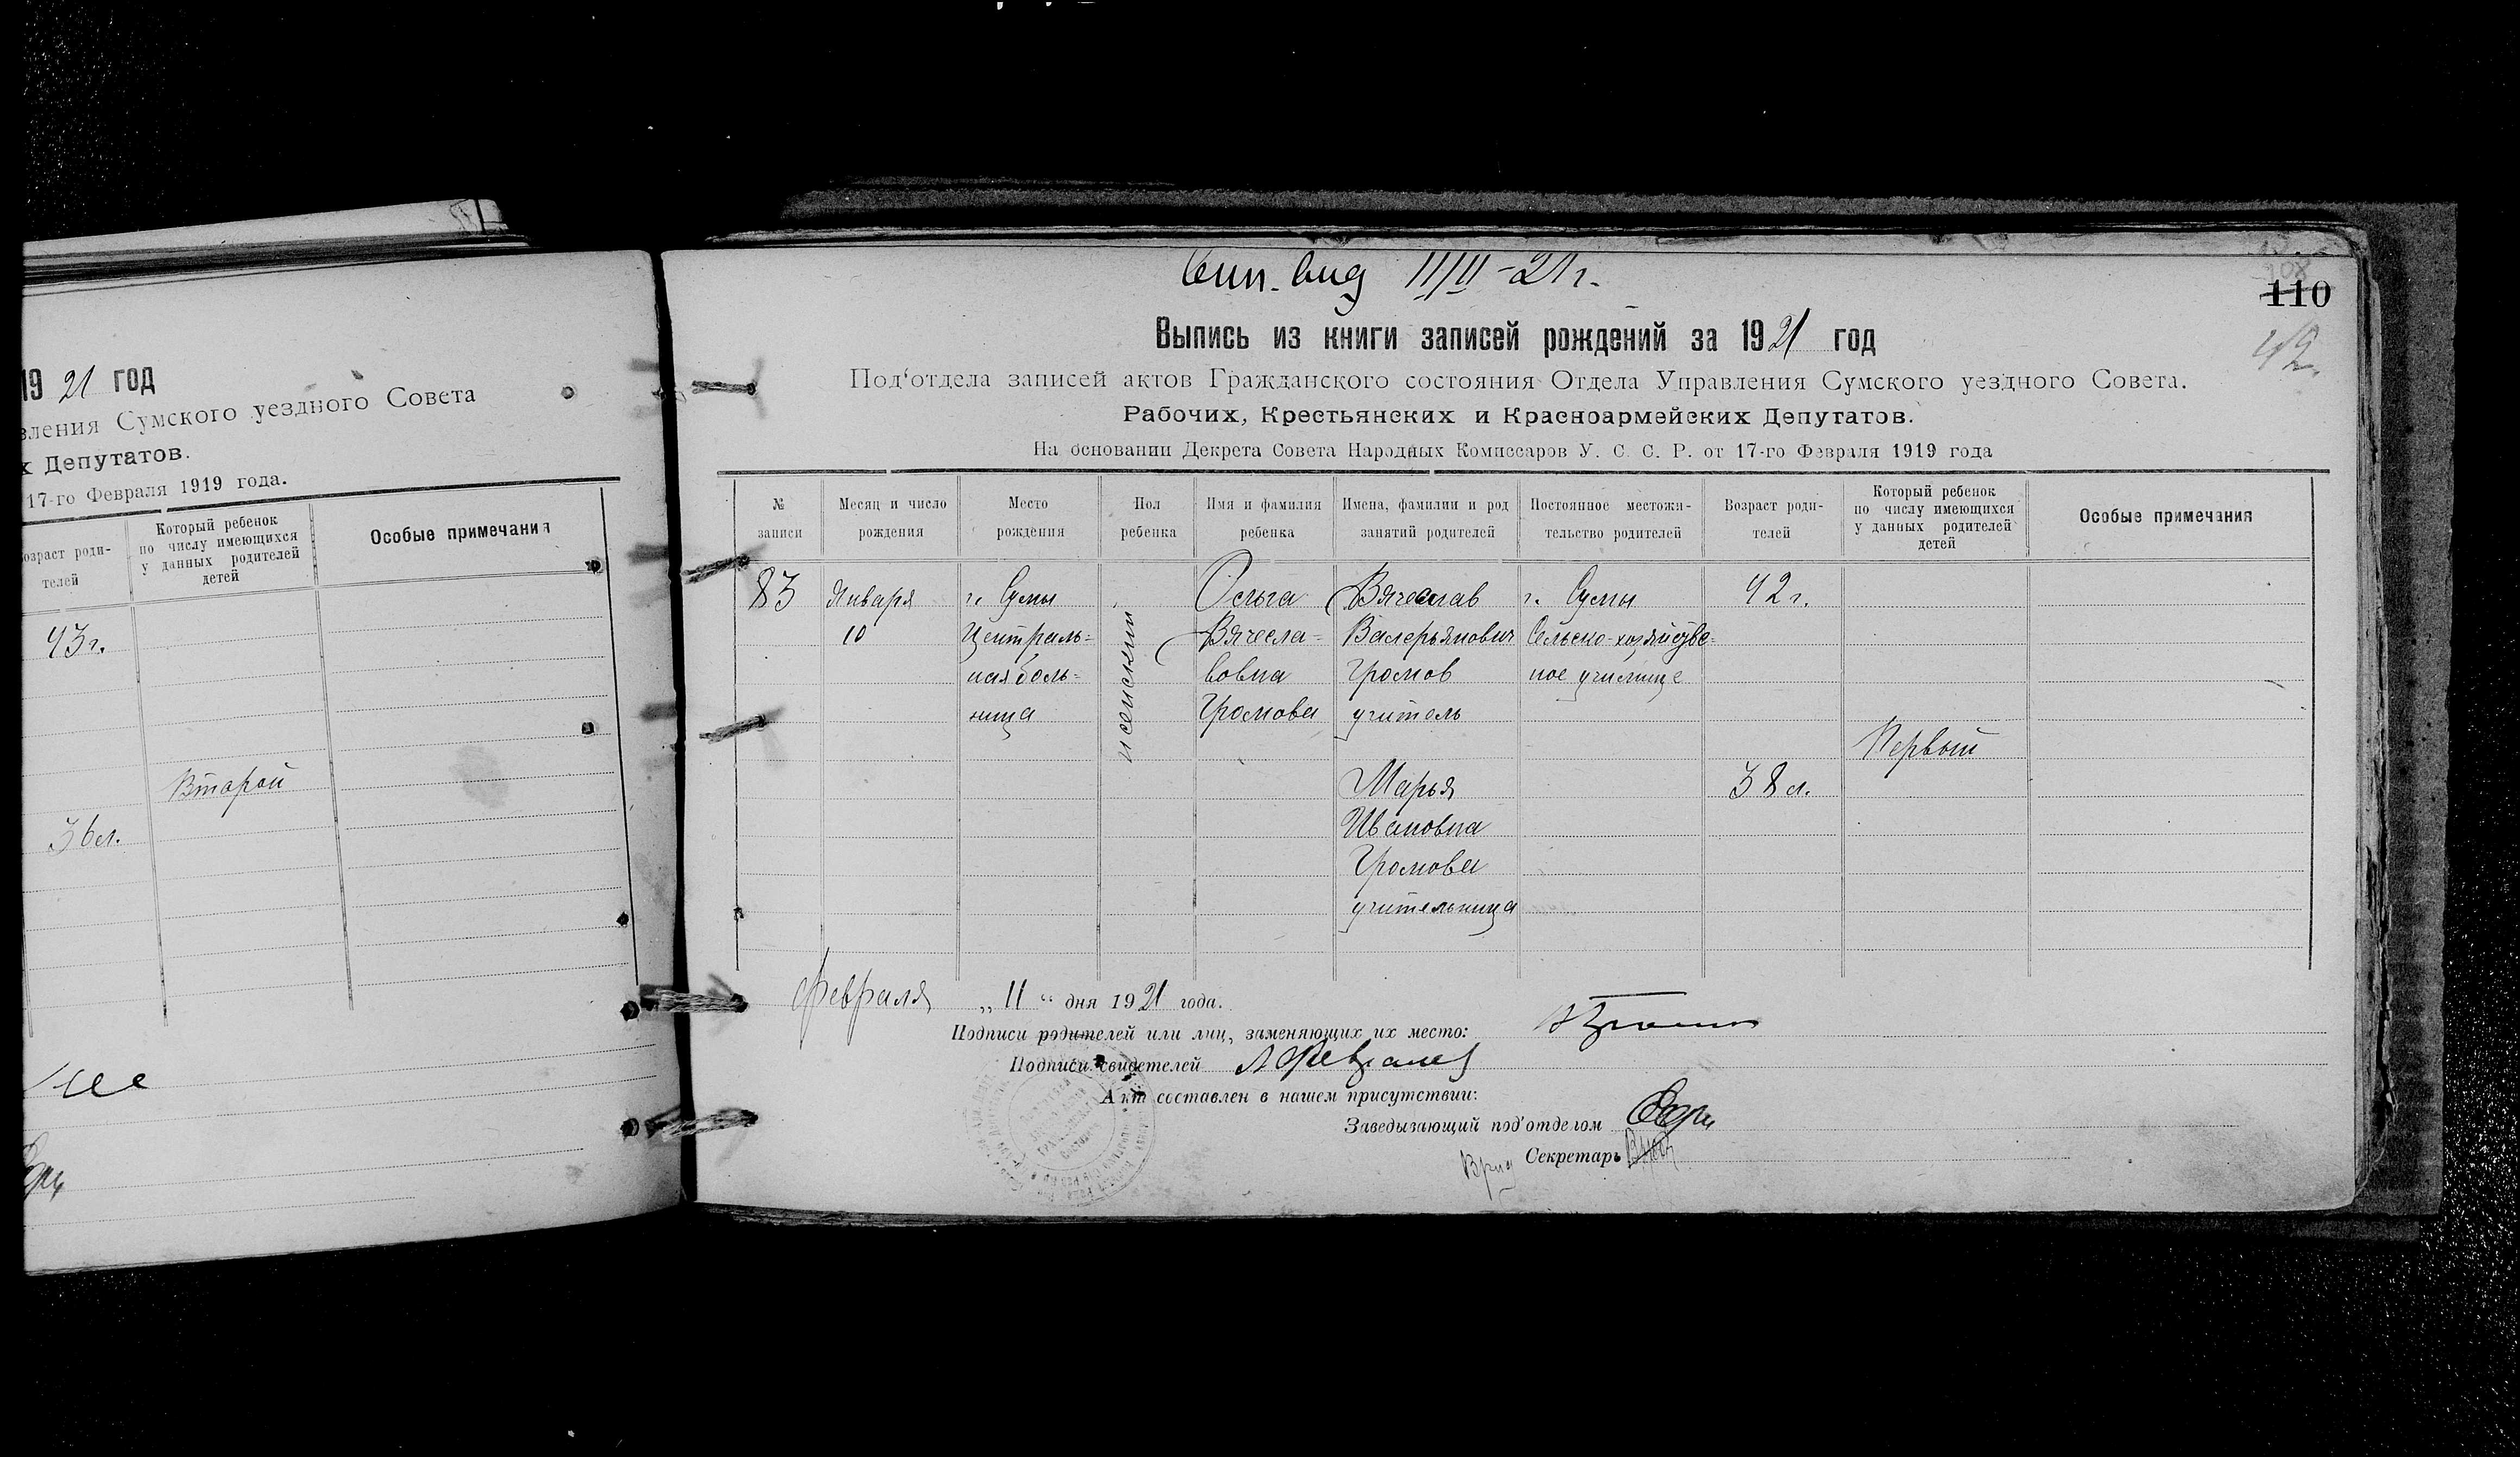 19 21 год
вления Сумского уездного Совета
х Депутатов.
17-го Февраля 1919 года.
Возраст роди-
телей
Который ребенок
по числу имеющихся
у данных родителей
детей
Особые примечания
43 г.
Второй
36 л.
11/II-21 г.
110
108
Выпись из книги записей рождений за 1921 год
Под‘отдела записей актов Гражданского состояния Отдела Управления Сумского уездного Совета.
Рабочих, Крестьянских и Красноармейских Депутатов.
На основании Декрета Совета Народных Комиссаров У. С. С. Р. от 17-го Февраля 1919 года
№
записи
Месяц и число
рождения
Место
рождения
Пол
ребенка
Имя и фамилия
ребенка
Имена, фамилии и род
занятий родителей
Постоянное местожи-
тельство родителей
Возраст роди-
телей
Который ребенок
по числу имеющихся
у данных родителей
детей
Особые примечания
83
Января
10
г. Сумы
Централь=
ная боль=
ница
женский
Ольга
Вячесла=
вовна
Громова
Вячеслав
Валерьянович
Громов
учитель
Марья
Ивановна
Громова
учительница
г. Сумы
Сельско-хозяйстве=
ное училище
42 г.
38 л.
Первый
Февраля „11“ дня 1921 года.
Подписи родителей или лиц, заменяющих их место:
Подписи свидетелей
Акт составлен в нашем присутствии:
Заведывающий под'отделом
Врид Секретарь